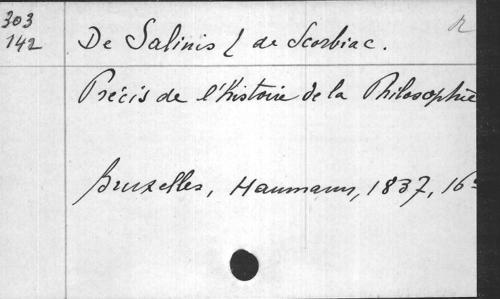 303
142
De Salinis & de Scorbiac.
Précis de l'histoire de la Philosophie
Bruxelles, Haumann, 1837, 16º